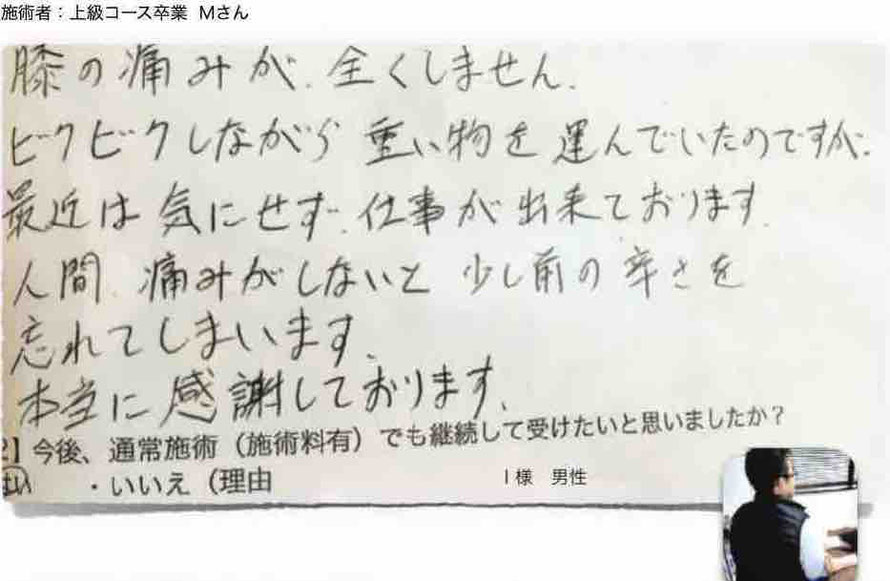 施術者：上級コース卒業 Mさん
膝の痛みが、全くしません。
ビクビクしながら 重い物を 運んでいたのですが、
最近は 気にせず、仕事が 出来ております。
人間、痛みがしないと 少し前の 辛さを
忘れてしまいます。
本当に 感謝しております。
2】今後、通常施術（施術料有）でも継続して受けたいと思いましたか？
はい ・いいえ（理由
I 様 男性